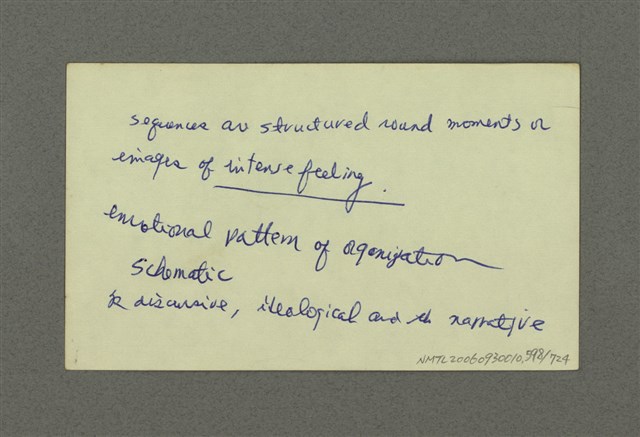 sequences are structured round moments or
images of intense feeling.
emotional pattern of organization
schematic
discursive, ideological and the narrative
NMTL20060930010.598/724